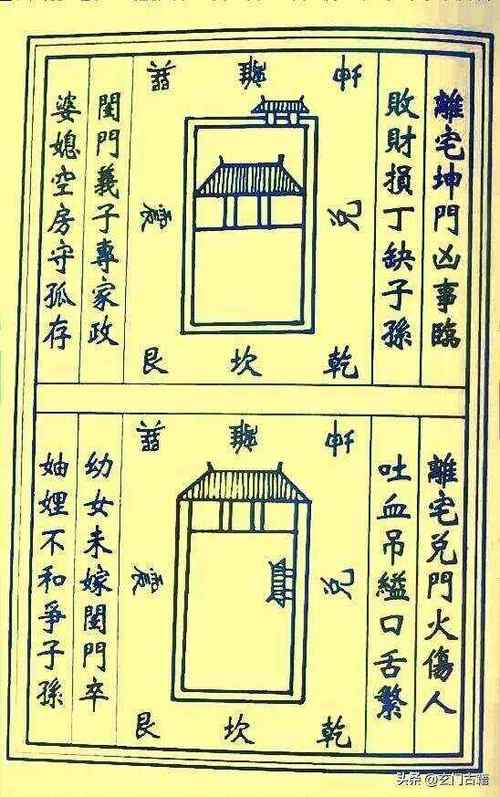 離宅坤門凶事臨
敗財損丁缺子孫
巽 離 坤
震 兌
艮 坎 乾
閨門義子專家政
婆媳空房守孤存
離宅兌門火傷人
吐血吊縊口舌繁
巽 離 坤
震 兌
艮 坎 乾
幼女未嫁閨門卒
妯娌不和爭子孫
头条 @玄门古籍